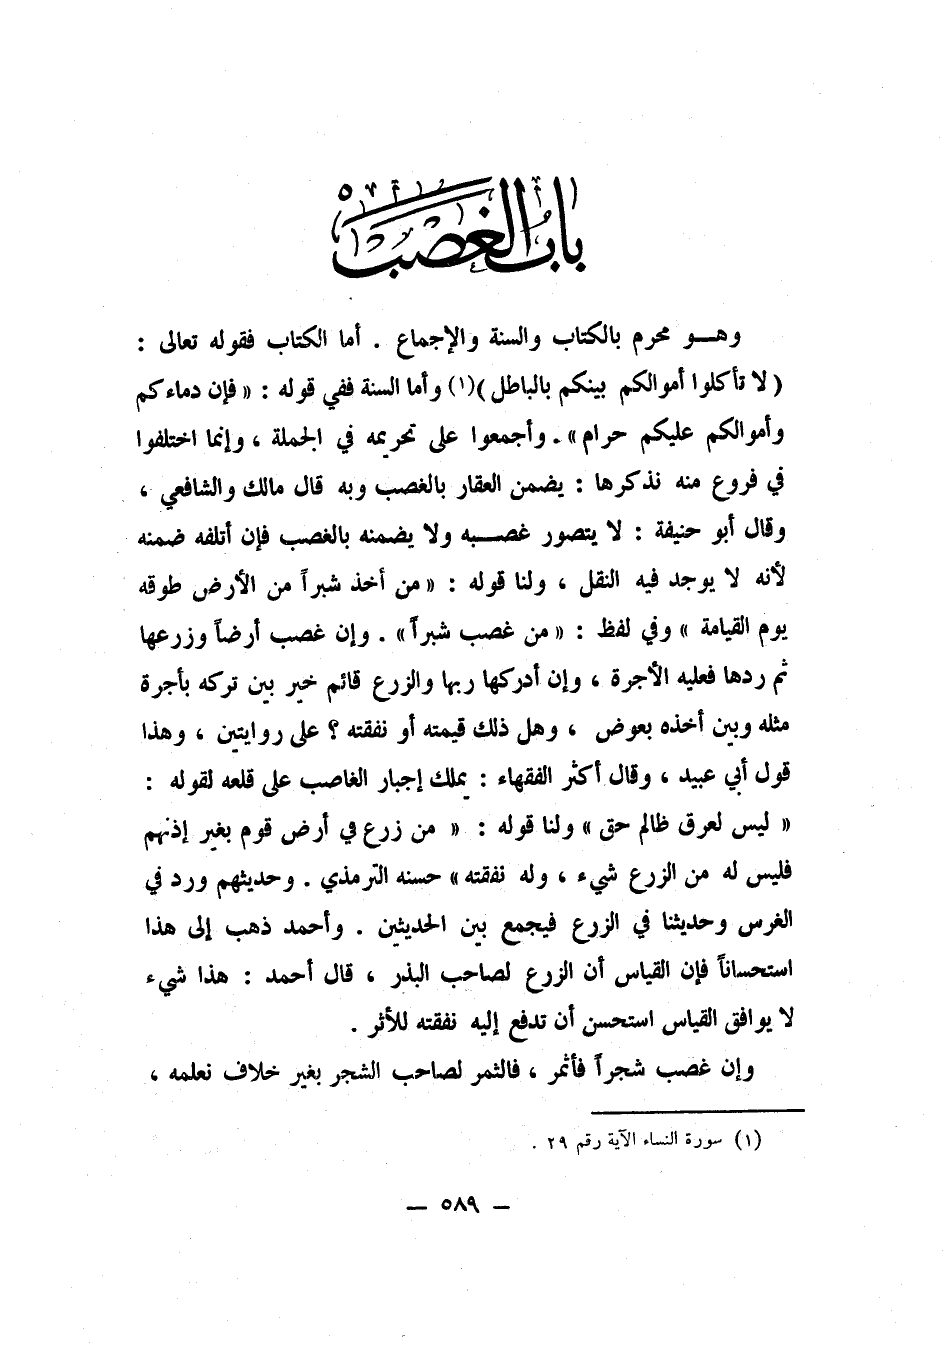 باب الغصب
وهـــو محرم بالكتاب والسنة والإجماع . أما الكتاب فقوله تعالى :
( لا تأكلوا أموالكم بينكم بالباطل )(١) وأما السنة ففي قوله : « فإن دماءكم
وأموالكم عليكم حرام » . وأجمعوا على تحريمه في الجملة ، وإنما اختلفوا
في فروع منه نذكرها : يضمن العقار بالغصب وبه قال مالك والشافعي ،
وقال أبو حنيفة : لا يتصور غصـــبه ولا يضمنه بالغصب فإن أتلفه ضمنه
لأنه لا يوجد فيه النقل ، ولنا قوله : « من أخذ شبراً من الأرض طوقه
يوم القيامة » وفي لفظ : « من غصب شبراً » . وإن غصب أرضاً وزرعها
ثم ردها فعليه الأجرة ، وإن أدركها ربها والزرع قائم خير بين تركه بأجرة
مثله وبين أخذه بعوض ، وهل ذلك قيمته أو نفقته ؟ على روايتين ، وهذا
قول أبي عبيد ، وقال أكثر الفقهاء : يملك إجبار الغاصب على قلعه لقوله :
« ليس لعرق ظالم حق » ولنا قوله : « من زرع في أرض قوم بغير إذنهم
فليس له من الزرع شيء ، وله نفقته » حسنه الترمذي . وحديثهم ورد في
الغرس وحديثنا في الزرع فيجمع بين الحديثين . وأحمد ذهب إلى هذا
استحساناً فإن القياس أن الزرع لصاحب البذر ، قال أحمد : هذا شيء
لا يوافق القياس استحسن أن تدفع إليه نفقته للأثر .
وإن غصب شجراً فأثمر ، فالثمر لصاحب الشجر بغير خلاف نعلمه ،
(١) سورة النساء الآية رقم ٢٩ .
— ٥٨٩ —